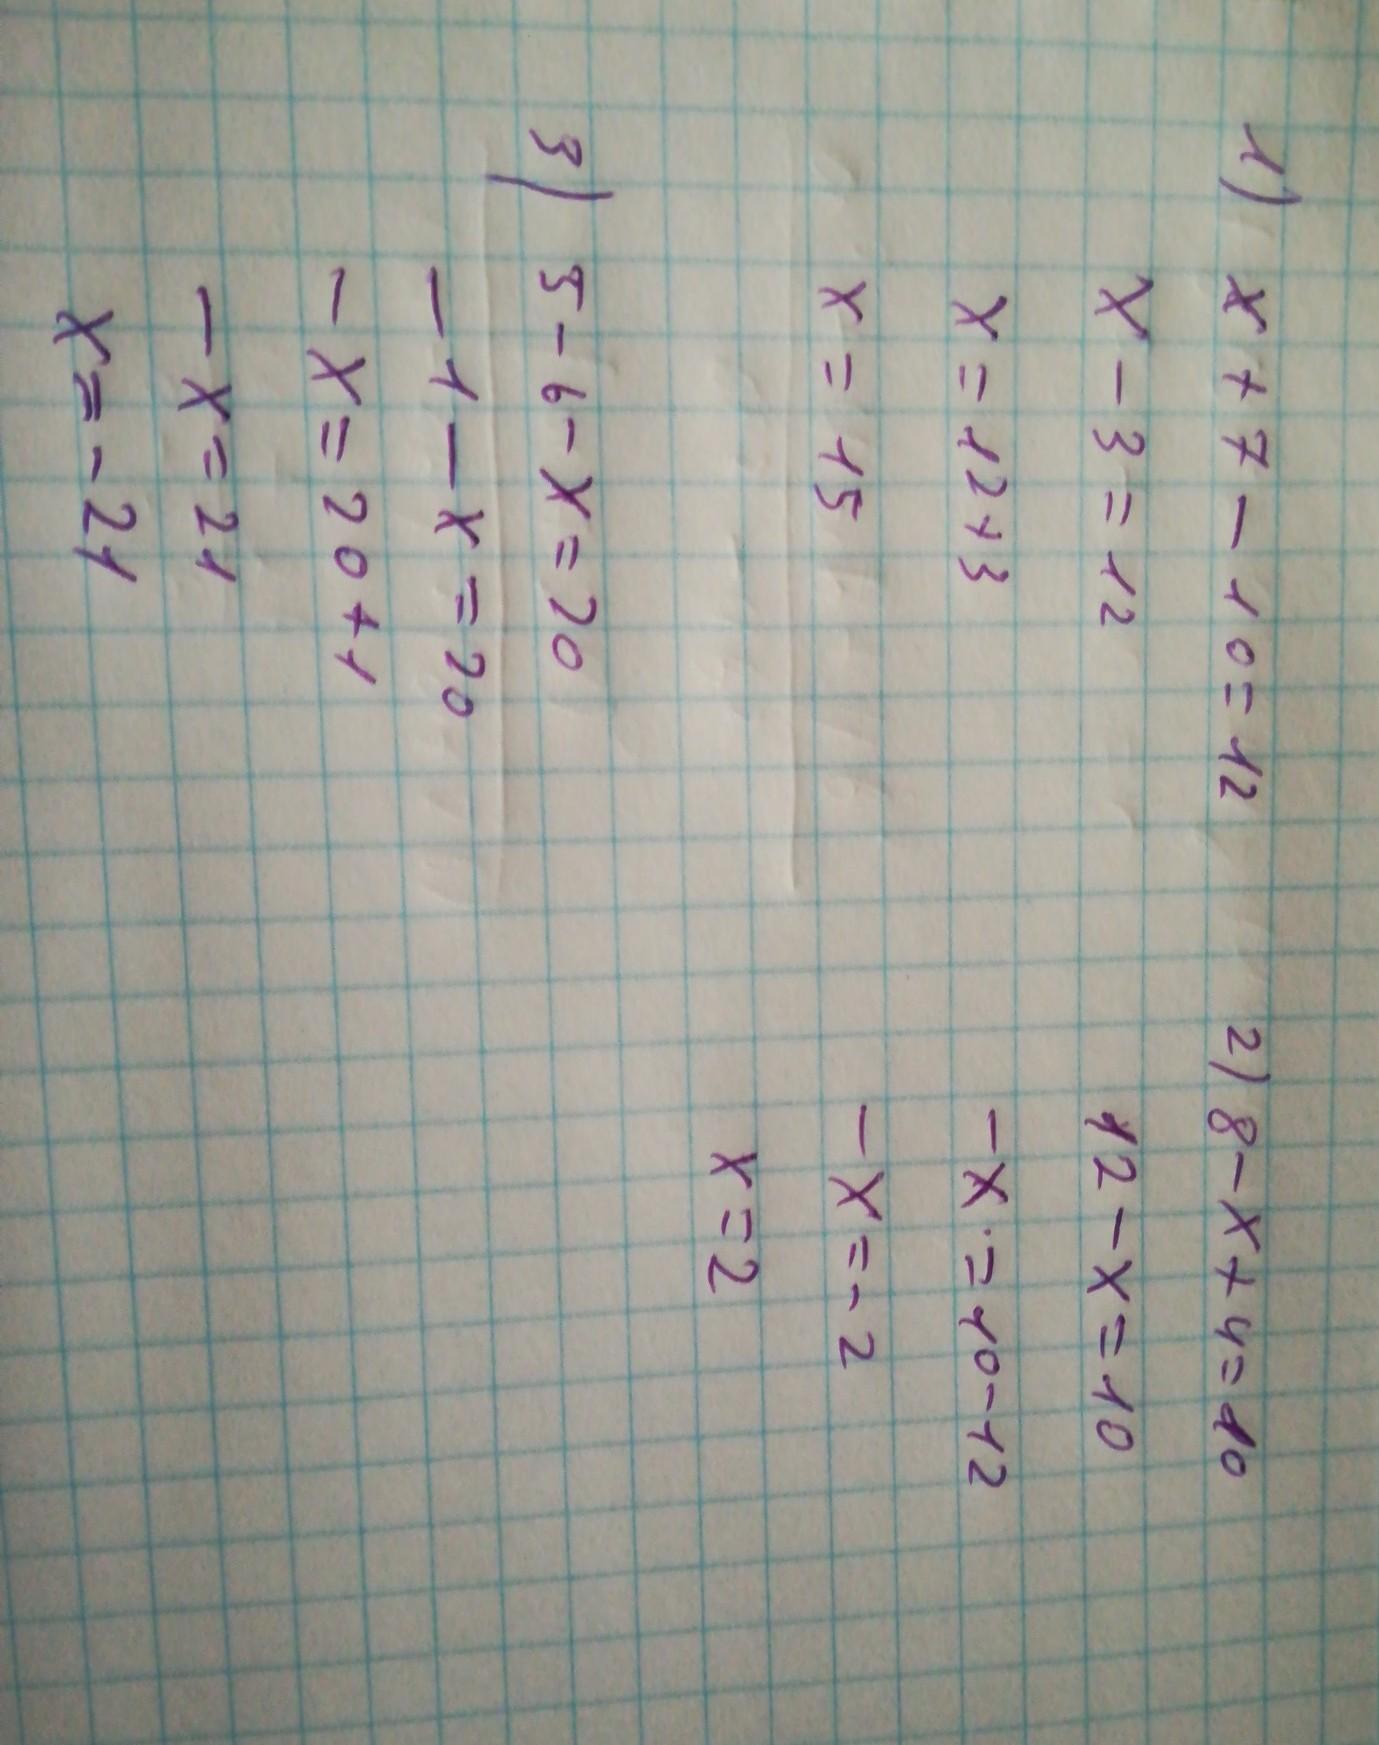 1) x+7-10=12
x-3=12
x=12+3
x=15
2) 8-x+4=10
12-x=10
-x=10-12
-x=-2
x=2
3) 5-6-x=20
-1-x=20
-x=20+1
-x=21
x=-21